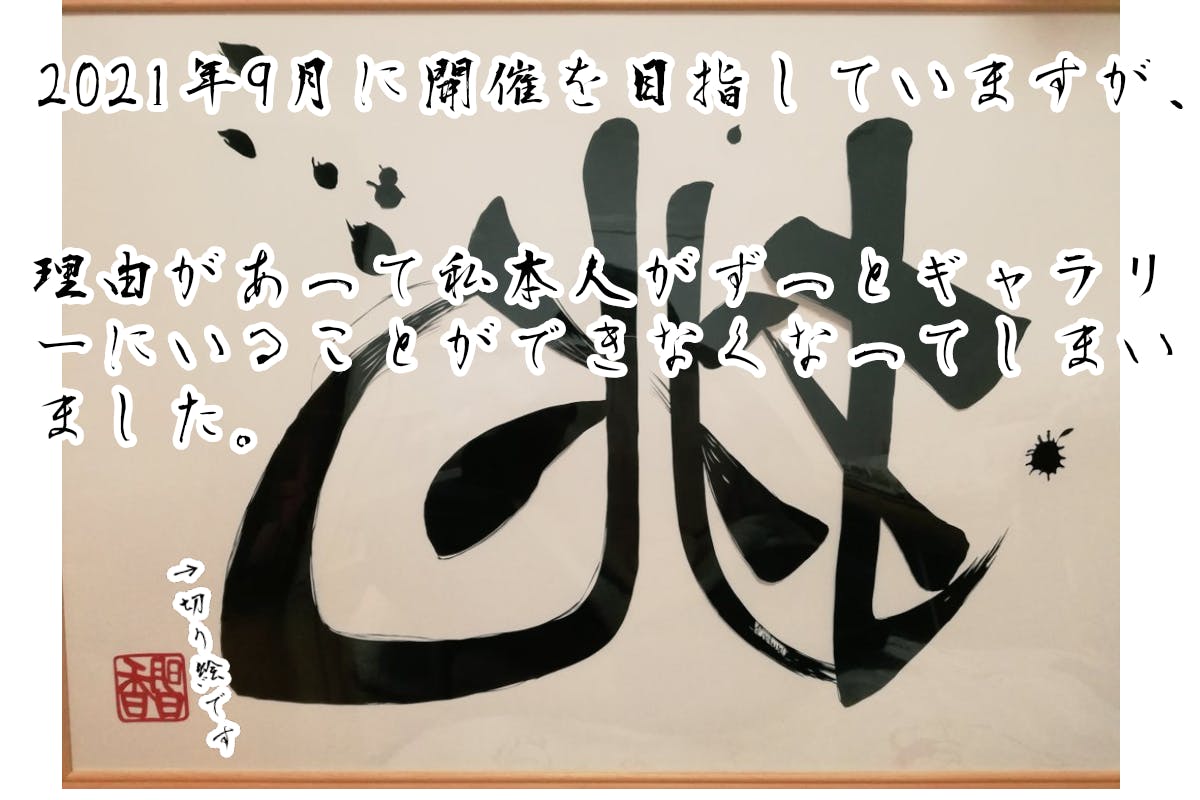 2021年9月に開催を目指していますが、
理由があって私本人がずっとギャラリ
ーにいることができなくなってしまい
ました。
→切り絵です